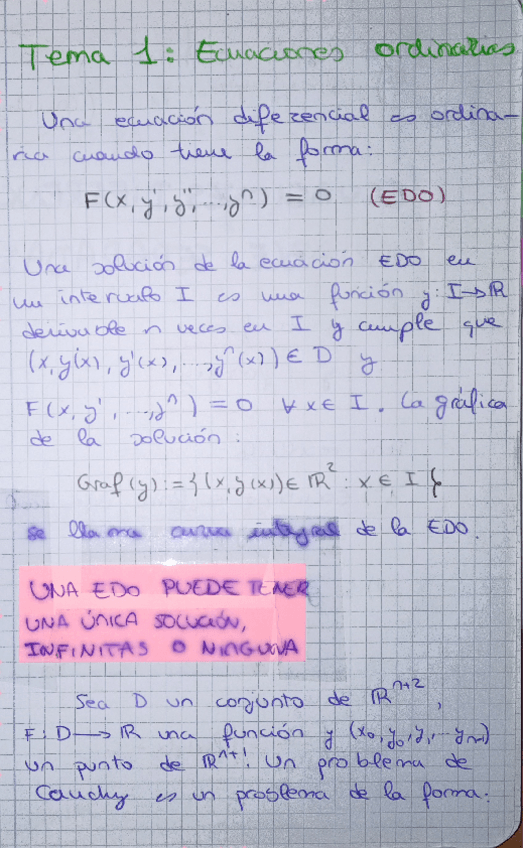 Tema 1: Ecuaciones ordinarias
Una ecuación diferencial es ordina-
ria cuando tiene la forma:
F(x, y', y'', ..., yⁿ) = 0 (EDO)
Una solución de la ecuación EDO en
un intervalo I es una función y: I→ℝ
derivable n veces en I y cumple que
(x, y(x), y'(x), ..., yⁿ(x)) ∈ D y
F(x, y', ..., yⁿ) = 0 ∀ x ∈ I. La gráfica
de la solución:
Graf(y) := {(x, y(x)) ∈ ℝ² : x ∈ I}
se llama curva integral de la EDO.
UNA EDO PUEDE TENER
UNA ÚNICA SOLUCIÓN,
INFINITAS O NINGUNA
Sea D un conjunto de ℝⁿ⁺²,
F: D → ℝ una función y (x₀, y₀, y₁, ... yₙ)
un punto de ℝⁿ⁺¹. Un problema de
Cauchy es un problema de la forma: